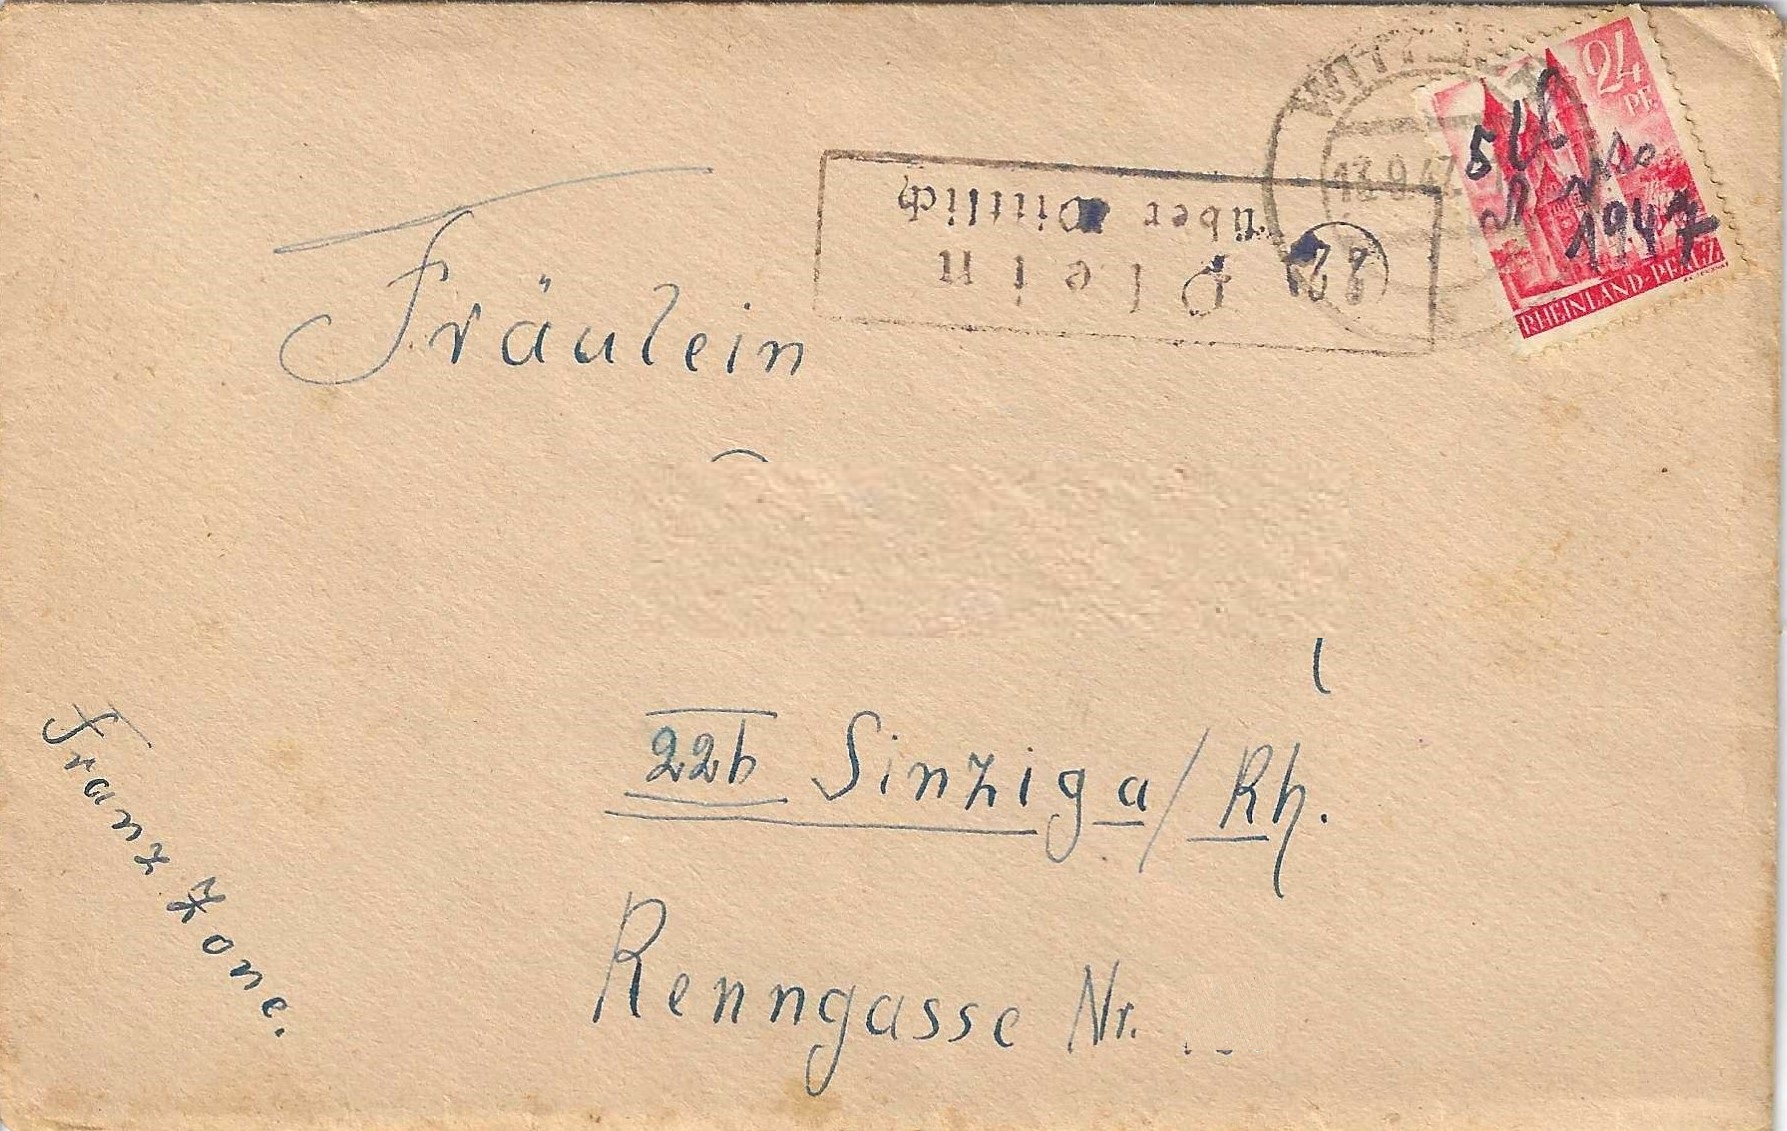 WITTLICH
13.9.47
24
PF.
RHEINLAND-PFALZ
1947
22
Plein
über Wittlich
Fräulein
22b Sinzig a/Rh.
Renngasse Nr.
Franz Zone.